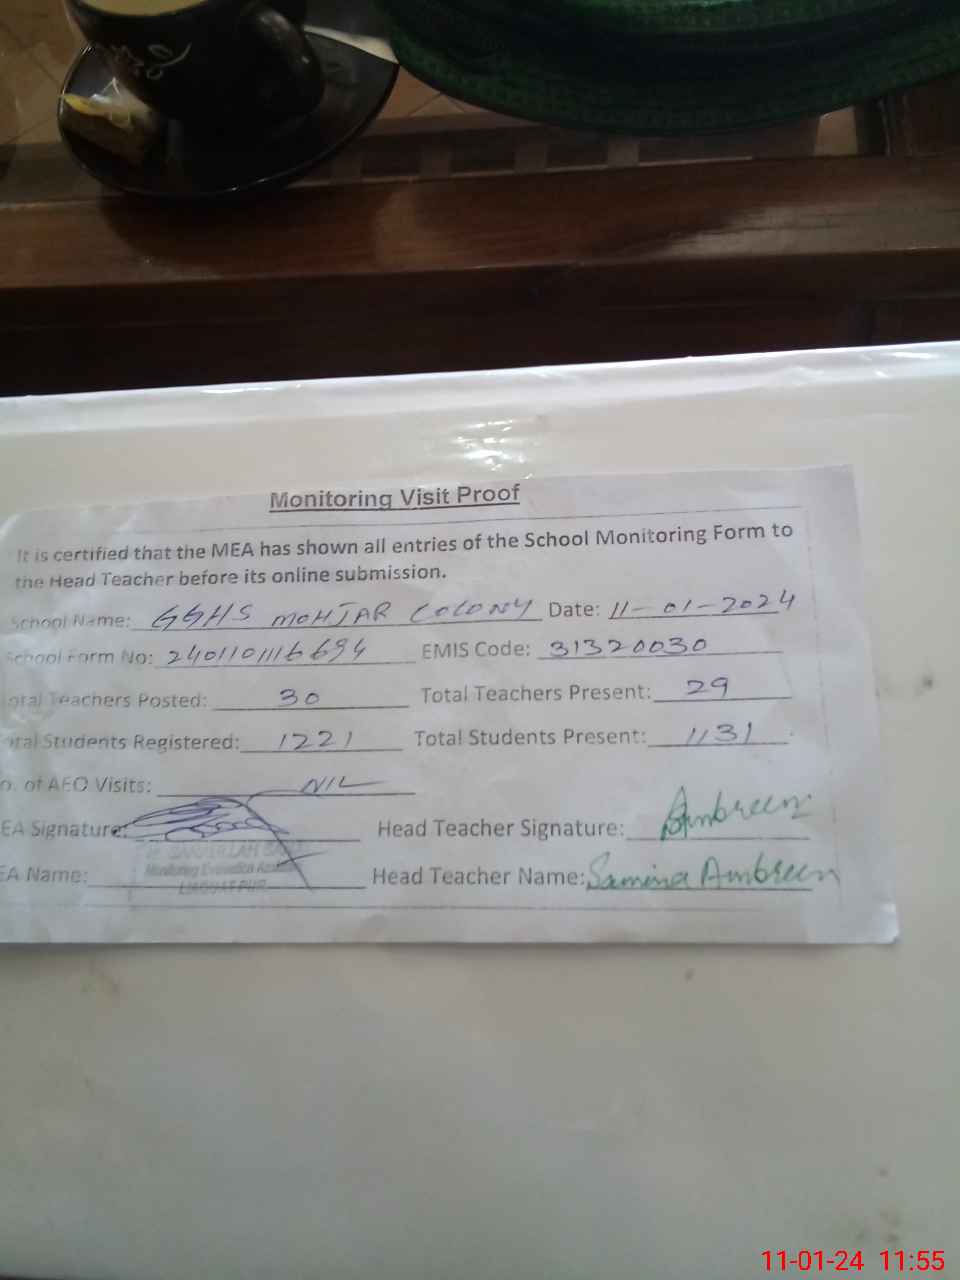 Monitoring Visit Proof
It is certified that the MEA has shown all entries of the School Monitoring Form to
the Head Teacher before its online submission.
School Name: GGHS MOHJAR COLONY Date: 11-01-2024
School Form No: 2401101116694 EMIS Code: 31320030
otal Teachers Posted: 30 Total Teachers Present: 29
otal Students Registered: 1221 Total Students Present: 1131
o. of AEO Visits: NIL
EA Signature: Head Teacher Signature: Ambreen
EA Name: Monitoring Evaluation Head Teacher Name: Samina Ambreen
LIAQUAT PUR
11-01-24 11:55